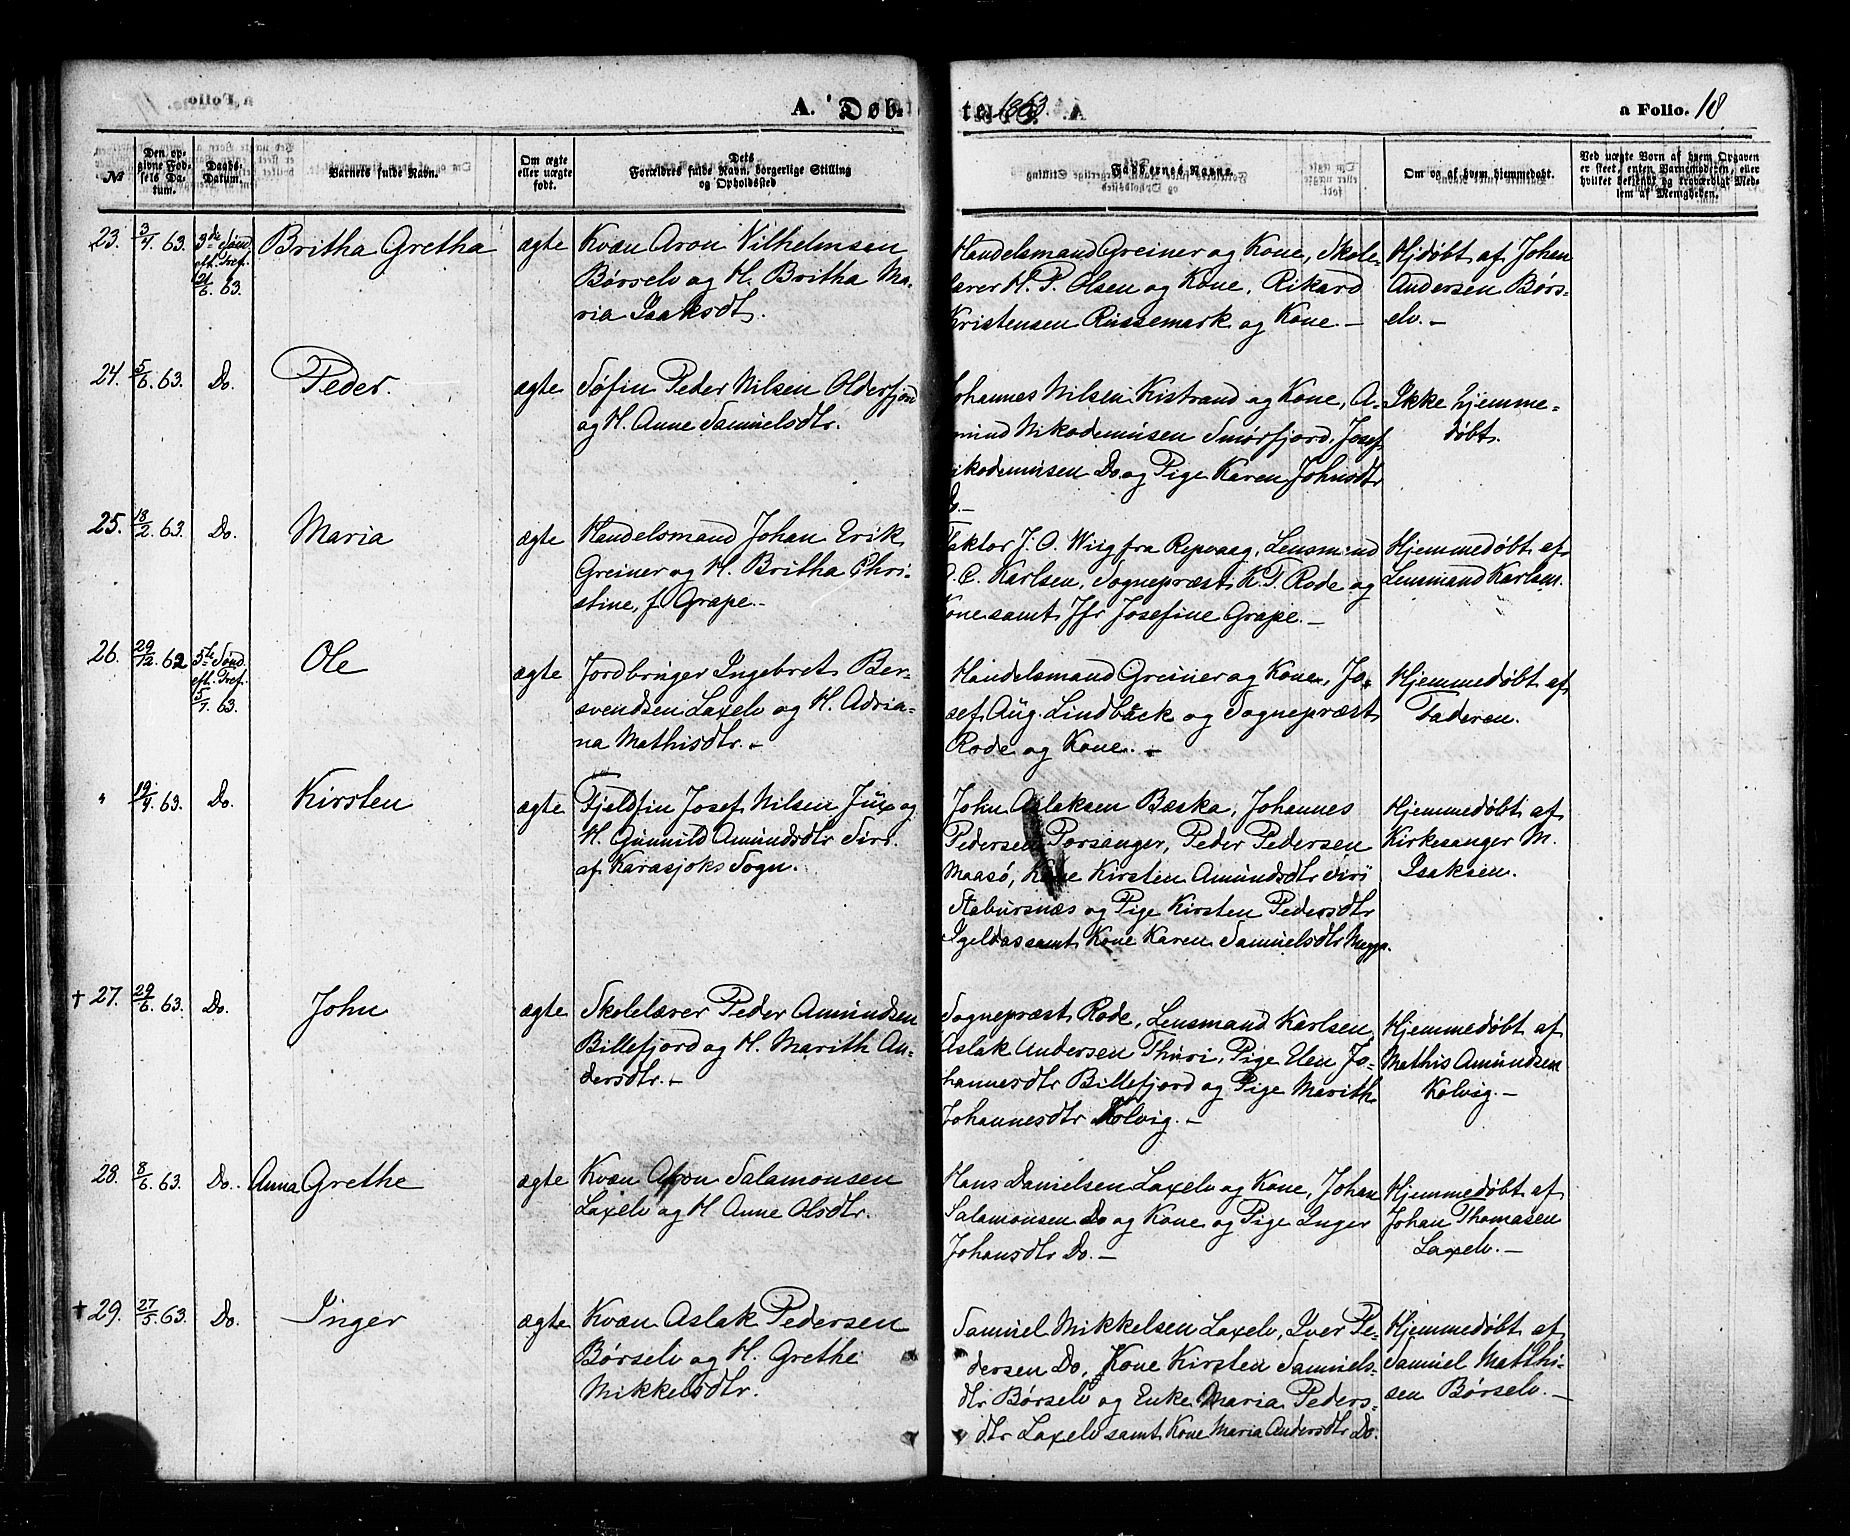 A. Døb-
te 1863. a Folio. 18
№
Den op-
givne Fød-
sels Da-
tum.
Daabs-
Datum.
Barnets fulde Navn.
Om ægte
eller uægte
født.
Dets
Forældres fulde Navn, borgerlige Stilling
og Opholdssted
Faddernes Navne.
Om og af hvem hjemmedøbt.
Ved uægte Børn af hvem Opgaven
er skeet, enten Barnemoderen, eller
hvilket bekjendt og troværdigt Med-
lem af Menigheden.
23. 3/4 63. 3die Sønd.
eft. Tref.
21/6 63.
Britha Gretha
ægte
Kvæn Aron Vilhelmsen
Børselv og H. Britha Ma-
ria Isaksdt.
Handelsmand Greiner og Kone, Skole-
lærer H. P. Olsen og Kone, Rikard
Kristensen Russemark og Kone. —
Hjdøbt af Johan
Andersen Børs-
elv. —
24. 5/6 63. Do.
Peder.
ægte
Søfin Peder Nilsen Olderfjord
og H. Anne Samuelsdtr.
Johannes Nilsen Kistrand og Kone, A-
mund Nikodemusen Smørfjord, Josef
Nikodemusen Do og Pige Karen Johnsdtr
Do. —
Ikke hjemme-
døbt.
25. 18/2 63. Do.
Maria
ægte
Handelsmand Johan Erik
Greiner og H. Britha Chri-
stine, f. Grape. —
Faktor J. O. Wiig fra Repvaag, Lensmand
C. Karlsen, Sognepræst K. T. Rode og
Kone samt Jfr Josefine Grape. —
Hjemmedøbt af
Lensmand Karlsen.
26. 29/12 62 5te Sønd.
eft. Tref.
5/7 63.
Ole
ægte
Jordbruger Ingebret Ber-
svendsen Laxelv og H. Adria-
na Mathisdtr. —
Handelsmand Greiner og Kone, Jo-
sef Aug. Lindbäck og Sognepræst
Rode og Kone. —
Hjemmedøbt af
Faderen.
" 19/4 63. Do.
Kirsten
ægte
Fjeldfin Josef Nilsen Jux og
H. Gunnild Amundsdtr Siri.
af Karasjoks Sogn.
John Aslaksen Bæska, Johannes
Pedersen Porsanger, Peder Pedersen
Maasø, Kone Kirsten Amundsdtr Siri
Stabursnæs og Pige Kirsten Pedersdtr
Igeldas samt Kone Karen Samuelsdtr Mugga.
Hjemmedøbt af
Kirkesanger M.
Isaksen.
† 27. 29/6 63. Do.
John
ægte
Skolelærer Peder Amundsen
Billefjord og H. Marith An-
dersdtr. —
Sognepræst Rode, Lensmand Karlsen,
Aslak Andersen Thuri, Pige Elen Jo-
hannesdtr Billefjord og Pige Marith
Johannesdtr Kolvig. —
Hjemmedøbt af
Mathis Amundsen
Kolvig. —
28. 8/6 63. Do.
Anna Grethe
ægte
Kvæn Aron Salamonsen
Laxelv og H Anne Olsdtr.
Hans Danielsen Laxelv og Kone, Johan
Salamonsen Do og Kone og Pige Inger
Johansdtr Do. —
Hjemmedøbt af
Johan Thomasen
Laxelv. —
† 29. 27/5 63. Do.
Inger
ægte
Kvæn Aslak Pedersen
Børselv og H. Grethe
Mikkelsdtr.
Samuel Mikkelsen Laxelv, Iver Pe-
dersen Do, Kone Kirsten Samuels-
dtr Børselv og Enke Maria Peders-
dtr Laxelv samt Kone Maria Andersdtr Do.
Hjemmedøbt af
Samuel Matthi-
sen Børselv. —